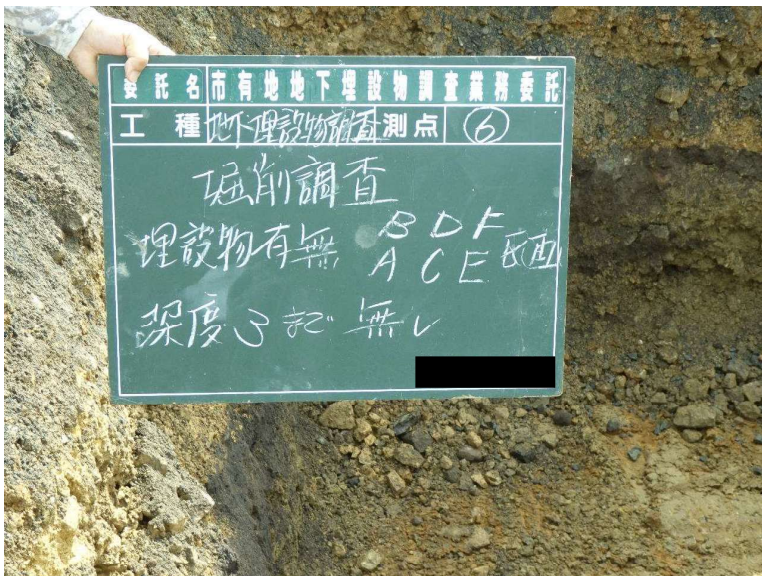 委託名 市有地地下埋設物調査業務委託
工種 地下埋設物調査 測点 ⑥
堀削調査
埋設物有無 B D F
A C E
深度3まで 無し